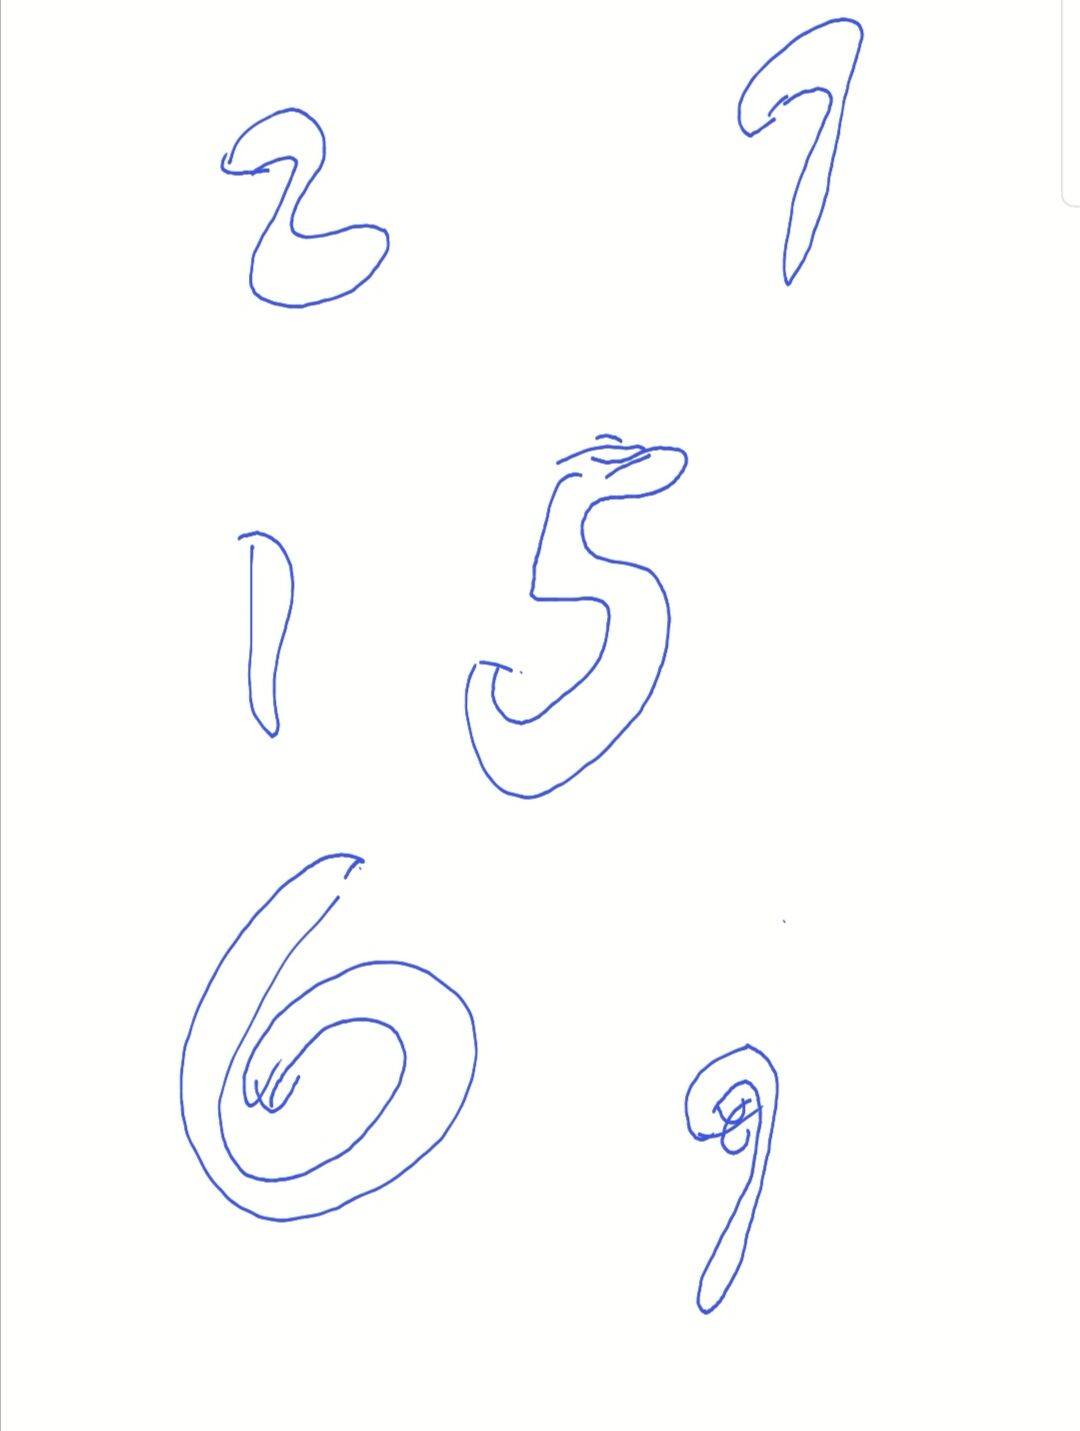 2 7
1 5
6 9